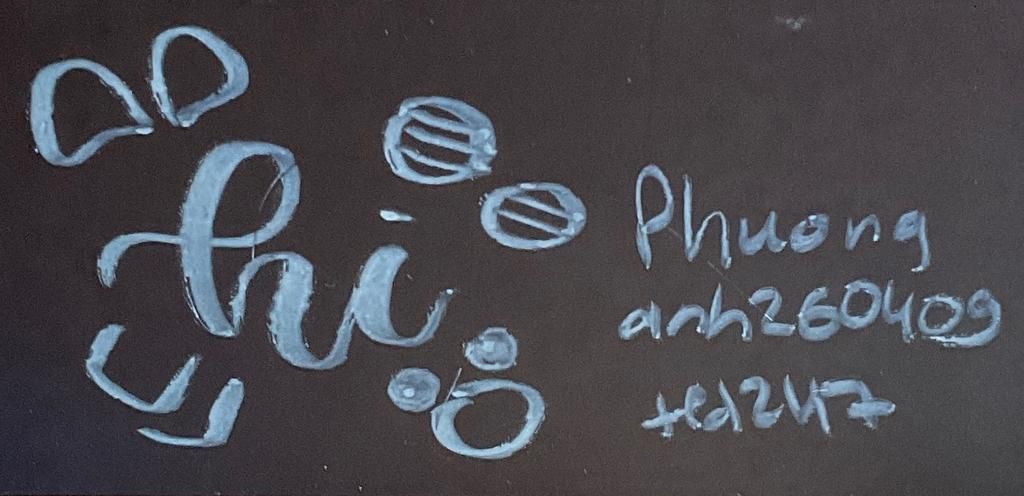 hi
Phuong
anh260409
ted247